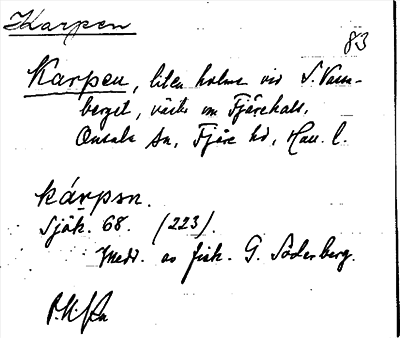 Karpen
83
Karpen, liten holme vid S. Vass-
berget, väster om Fjärehals,
Onsala sn, Fjäre hd, Hall. l.
kárpsn.
Sjök. 68. (223).
Medd. av fisk. G. Söderberg.